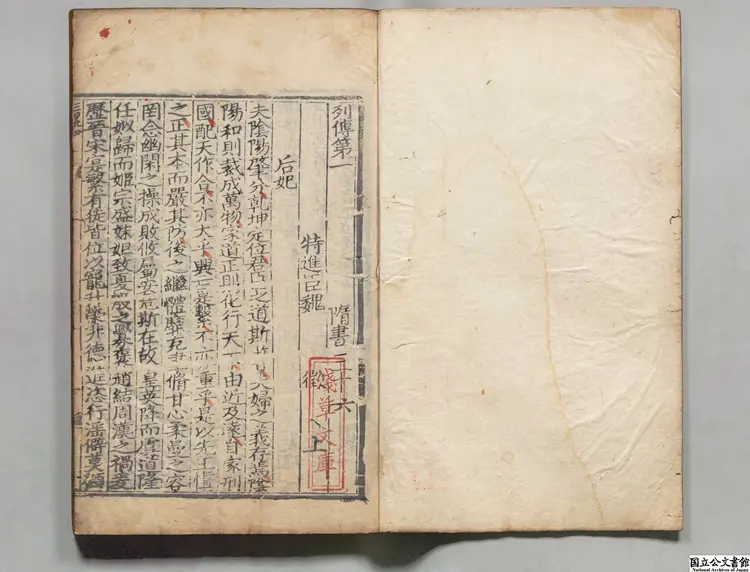 列傳第一 隋書三十六
特進臣魏 徵 上
后妃
夫陰陽肇分乾坤定位君臣之道斯著夫婦之義存焉陰
陽和則裁成萬物家道正則化行天下由近及遠自家刑
國配天作合不亦大乎興亡是繫不亦重乎是以先王慎
之正其本而嚴其防後之繼體靡克聿脩甘心柔曼之容
罔念幽閑之操成敗攸屬安危斯在故皇英降而虞道隆
任姒歸而姬宗盛妹妲致夏殷之釁褒趙結周漢之禍爰
歷晉宋寔繁有徒皆位以寵升榮非德進恣行淫僻莫顧
淺草文庫
国立公文書館
National Archives of Japan